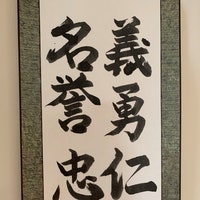 義勇仁
名誉忠